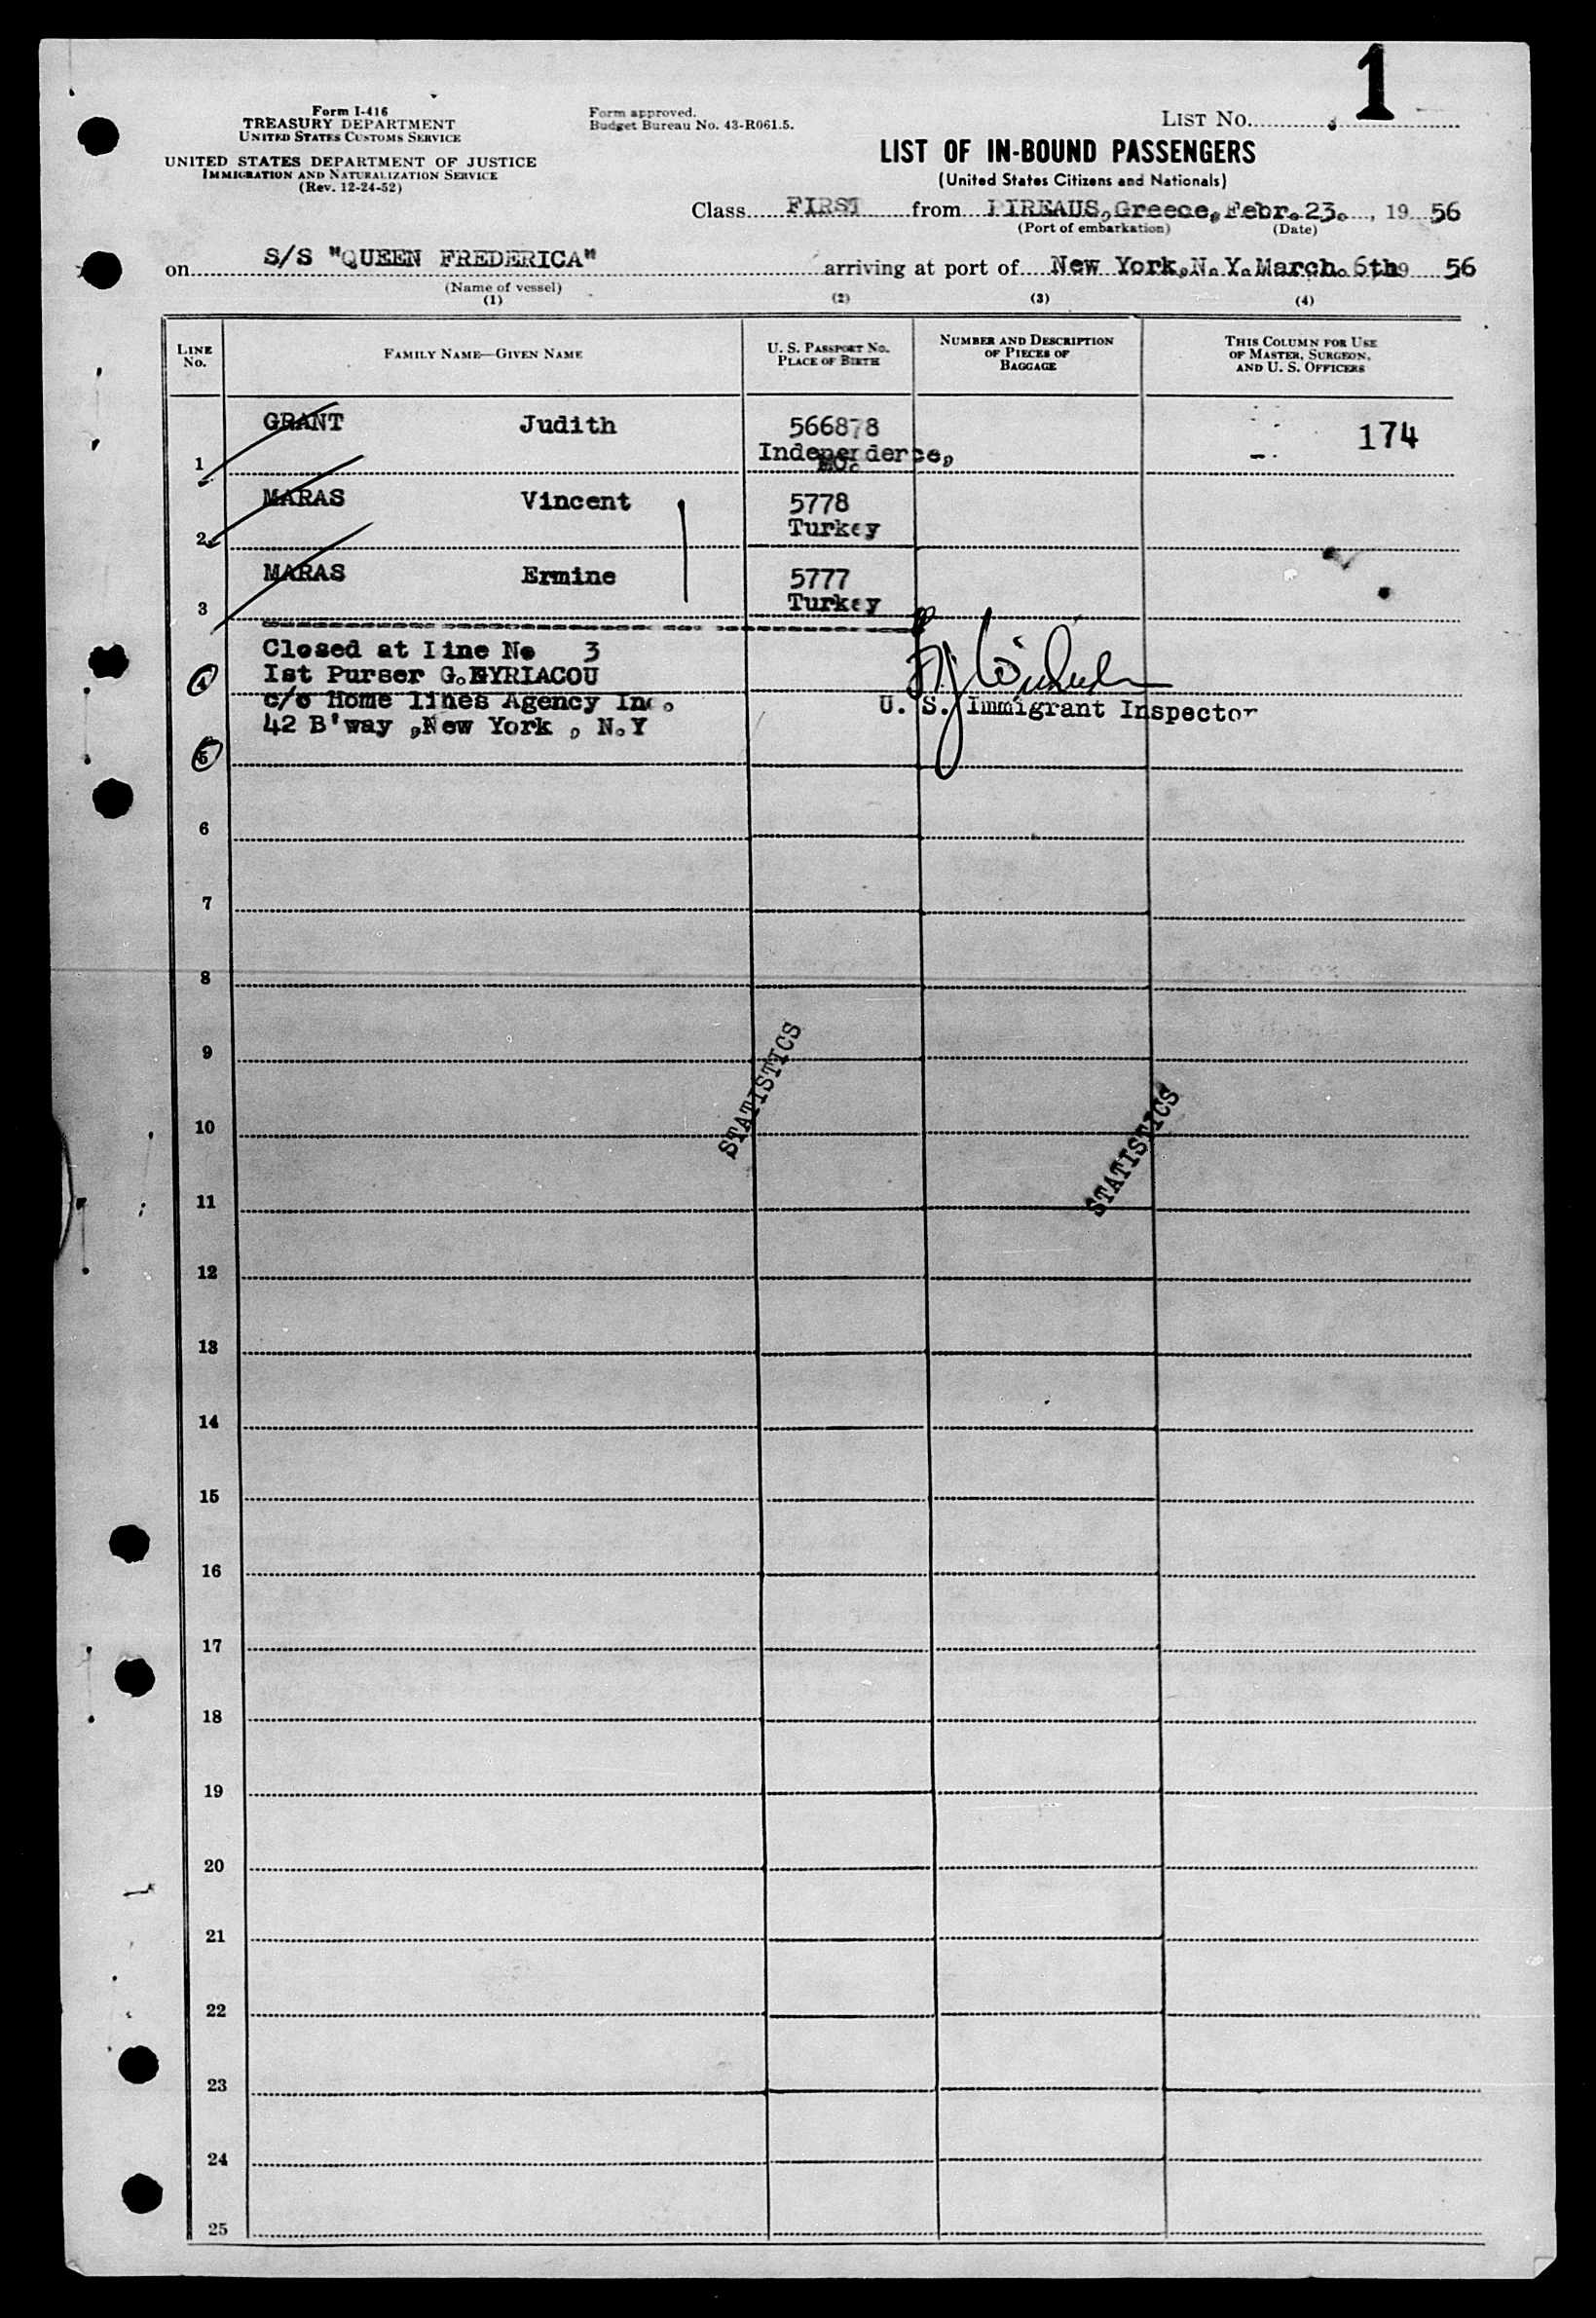 1
Form I-416
TREASURY DEPARTMENT
UNITED STATES CUSTOMS SERVICE
UNITED STATES DEPARTMENT OF JUSTICE
IMMIGRATION AND NATURALIZATION SERVICE
(Rev. 12-24-52)
Form approved.
Budget Bureau No. 43-R061.5.
LIST NO.
LIST OF IN-BOUND PASSENGERS
(United States Citizens and Nationals)
Class FIRST from PIREAUS, Greece, Febr. 23. , 19 56
(Port of embarkation) (Date)
on S/S "QUEEN FREDERICA" arriving at port of New York, N. Y. March. 6th 9 56
(Name of vessel)
(1) (2) (3) (4)
LINE No. FAMILY NAME—GIVEN NAME U. S. PASSPORT NO. PLACE OF BIRTH NUMBER AND DESCRIPTION OF PIECES OF BAGGAGE THIS COLUMN FOR USE OF MASTER, SURGEON, AND U. S. OFFICERS
GRANT Judith 566878 174
1 Independence, Mo.
MARAS Vincent 5778
2 Turkey
MARAS Ermine 5777
3 Turkey
Closed at Line No 3
4 Ist Purser G. KYRIACOU
c/o Home lines Agency Inc. U. S. Immigrant Inspector
42 B'way ,New York , N.Y
5
6
7
8
9
STATISTICS
10
STATISTICS
11
12
13
14
15
16
17
18
19
20
21
22
23
24
25